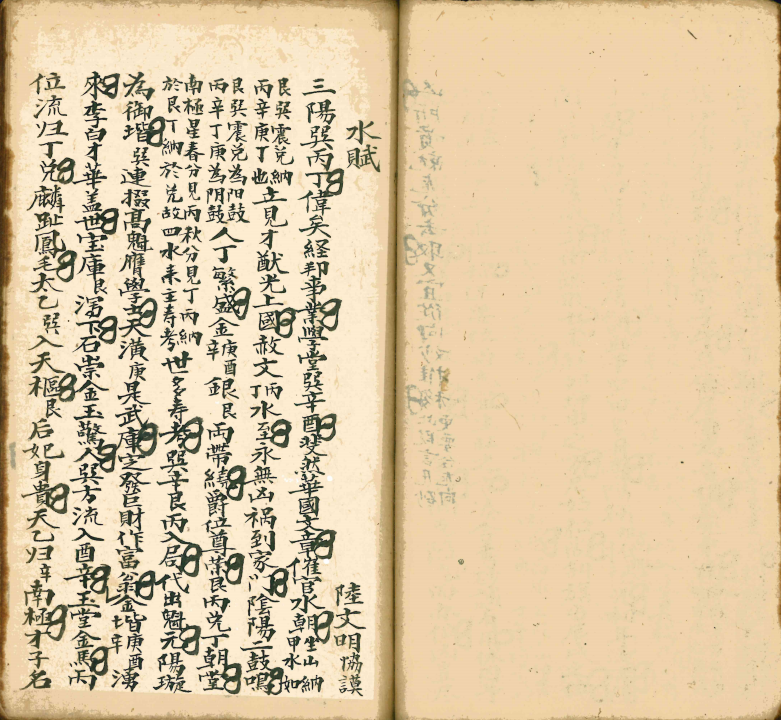 水賦
陸文明協謨
三陽巽丙丁偉矣経邦事業學堂巽辛酉斐然華國文章催官水朝坐山納甲水如
艮巽震兌納丙辛庚丁也立見才猷光上國赦文丙丁水至永無凶禍到家门陰陽二鼓鳴
艮巽震兌為阳鼓丙辛丁庚為阴鼓人丁繁盛金庚酉辛銀艮両帶繞爵位尊榮艮丙兌丁朝堂
南極星春分見丙秋分見丁丙納於艮丁納於兌故四水来主寿考世多寿考巽辛艮丙入局代出魁元陽璇
為御堦巽連掇高魁膺學士天潢庚是武庫定發巨財作富翁金堦庚酉辛湧
來李白才華盖世宝庫艮瀉下石崇金玉驚人巽方流入酉辛玉堂金馬丙
位流归丁兌麟趾鳳毛太乙巽入天樞艮后妃身貴天乙归辛南極才子名